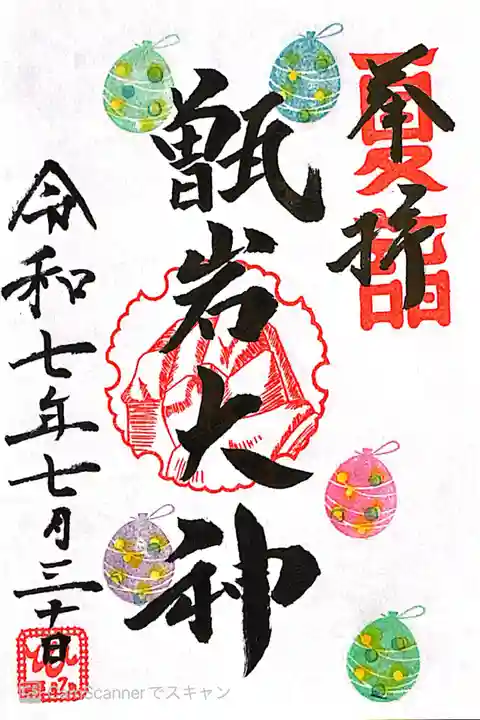 奉拝
夏詣
甑岩大神
令和七年七月三十日
CamScannerでスキャン